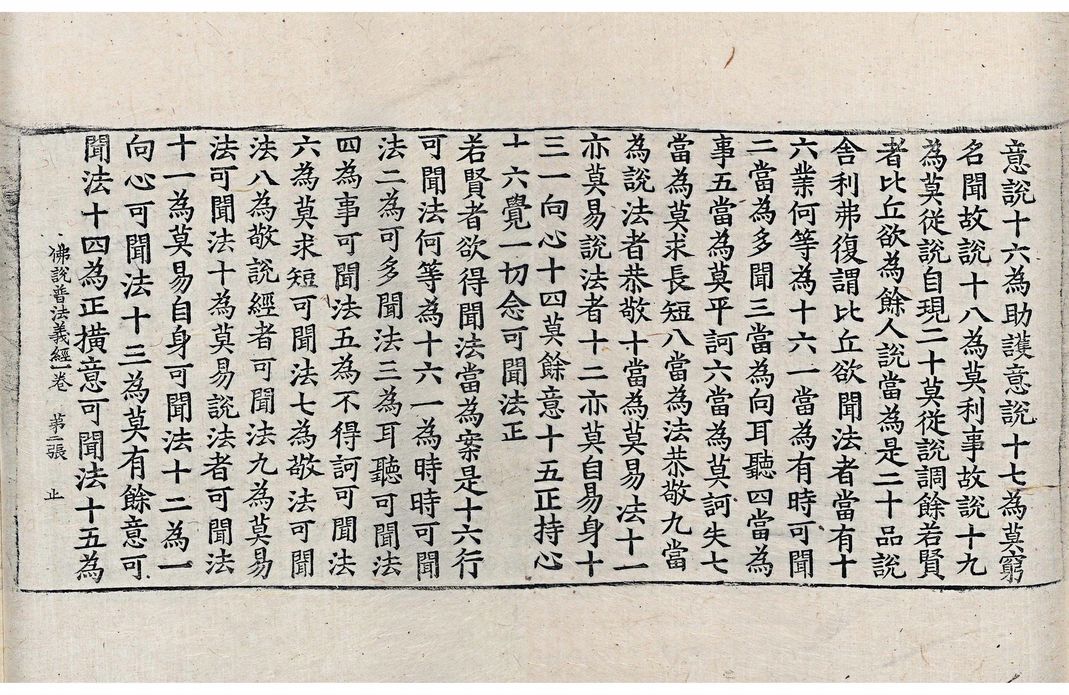 意說十六為助護意說十七為莫窮
名聞故說十八為莫利事故說十九
為莫從說自現二十莫從說調餘若賢
者比丘欲為餘人說當為是二十品說
舍利弗復謂比丘欲聞法者當有十
六業何等為十六一當為有時可聞
二當為多聞三當為向耳聽四當為
事五當為莫平訶六當為莫訶失七
當為莫求長短八當為法恭敬九當
為說法者恭敬十當為莫易法十一
亦莫易說法者十二亦莫自易身十
三一向心十四莫餘意十五正持心
十六覺一切念可聞法正
若賢者欲得聞法當為案是十六行
可聞法何等為十六一為時時可聞
法二為可多聞法三為耳聽可聞法
四為事可聞法五為不得訶可聞法
六為莫求短可聞法七為敬法可聞
法八為敬說經者可聞法九為莫易
法可聞法十為莫易說法者可聞法
十一為莫易自身可聞法十二為一
向心可聞法十三為莫有餘意可
聞法十四為正撗意可聞法十五為
佛說普法義經一卷 第二張 止